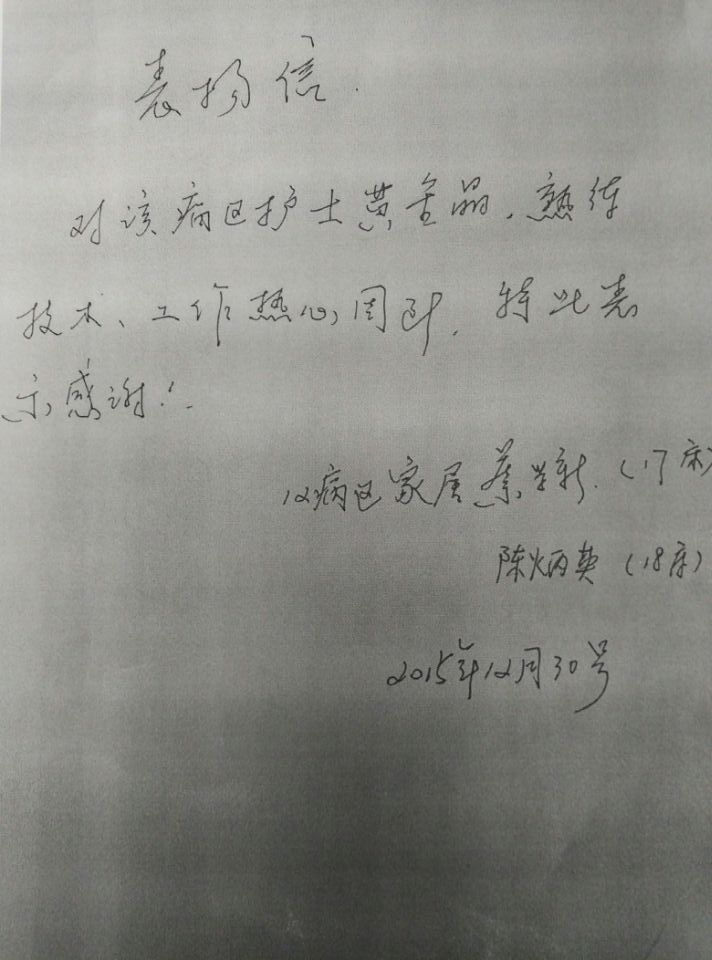 表扬信.
对该病区护士黄金晶、熟练
技术、工作热心周到, 特此表
示感谢!
12病区家居蔡学新.(17床)
陈炳英(18床)
2015年12月30号